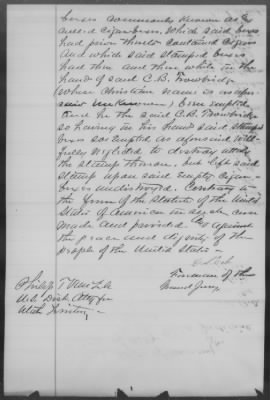 boxes commonly known as &
called cigar boxes. Which said boxes
had prior thereto contained cigars
And which said stamped boxes
had then and there while in the
hands of said C.B. Trowbridge
(whose Christian name is as afore-
said unknown) been emptied
And he the said C.B. Trowbridge
so having in his hand said stamped
boxes so emptied as aforesaid will-
fully neglected to destroy utterly
the stamp thereon, but left said
stamp upon said empty cigar
boxes undestroyed. Contrary to
the form of the Statute of the United
States of America in such case
made and provided. And against
the peace and dignity of the
people of the United States.
Foreman of the
Grand Jury
Philip T. Van Zile
U.S. Dist. Atty for
Utah Territory